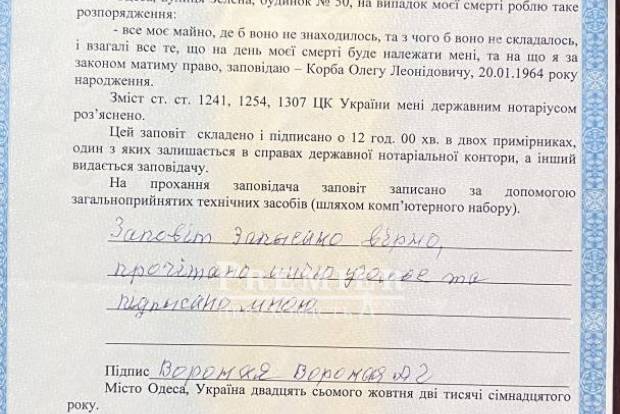 Одеса, вулиця Зелена, будинок № 50, на випадок моєї смерті роблю таке
розпорядження:
- все моє майно, де б воно не знаходилось, та з чого б воно не складалось,
і взагалі все те, що на день моєї смерті буде належати мені, та на що я за
законом матиму право, заповідаю – Корба Олегу Леонідовичу, 20.01.1964 року
народження.
Зміст ст. ст. 1241, 1254, 1307 ЦК України мені державним нотаріусом
роз’яснено.
Цей заповіт складено і підписано о 12 год. 00 хв. в двох примірниках,
один з яких залишається в справах державної нотаріальної контори, а інший
видається заповідачу.
На прохання заповідача заповіт записано за допомогою
загальноприйнятих технічних засобів (шляхом комп’ютерного набору).
Заповіт записано вірно,
та
PREMIER
підписано мною
Підпис
Місто Одеса, Україна двадцять сьомого жовтня дві тисячі сімнадцятого
року.